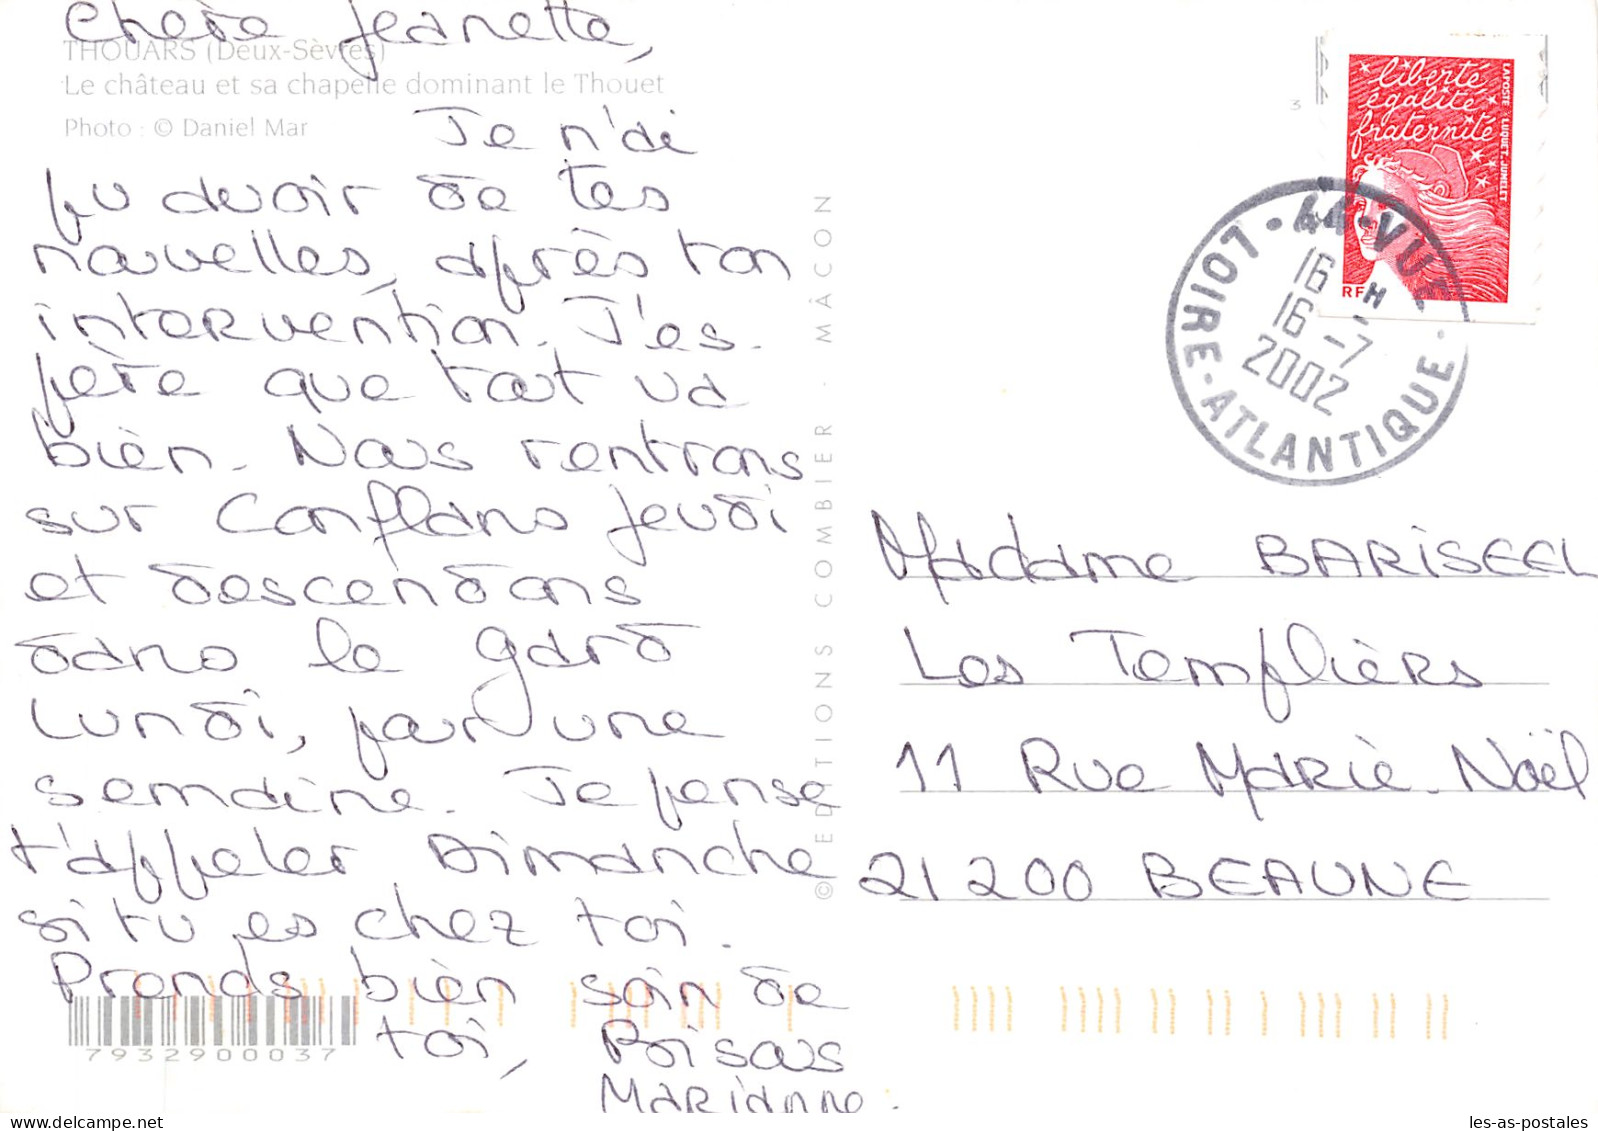 Chère Jeanette,
THOUARS (Deux-Sèvres)
Le château et sa chapelle dominant le Thouet
Photo : © Daniel Mar
Je n'ai
pu avoir de tes
nouvelles, après ton
intervention. J'es-
père que tout va
bien. Nous rentrons
sur Conflans jeudi
et descendons
dans le gard
Lundi, pour une
semaine. Je pense
t'appeler Dimanche
si tu es chez toi.
Prends bien soin de
toi, Bisous
MARIANNE.
7932900037
© EDITIONS COMBIER - MÂCON
3
liberté
égalité
fraternité
LA POSTE LUQUET-JUMELET
RF
44-VUE
LOIRE-ATLANTIQUE
16 H
16-7
2002
Madame BARISEEL
Les Templiers
11 Rue MARIE-Noël
21200 BEAUNE
les-as-postales